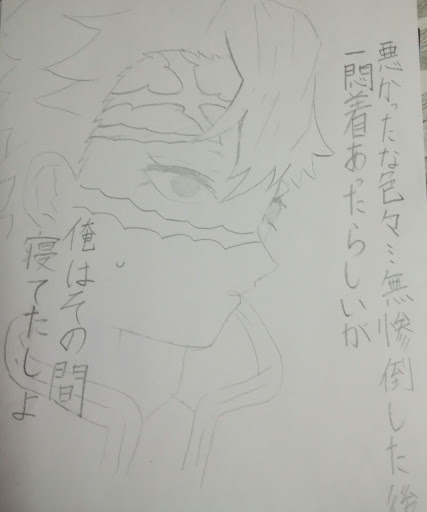 悪かったな色々…無惨倒した後
一悶着あったらしいが
俺はその間
寝てたしよ